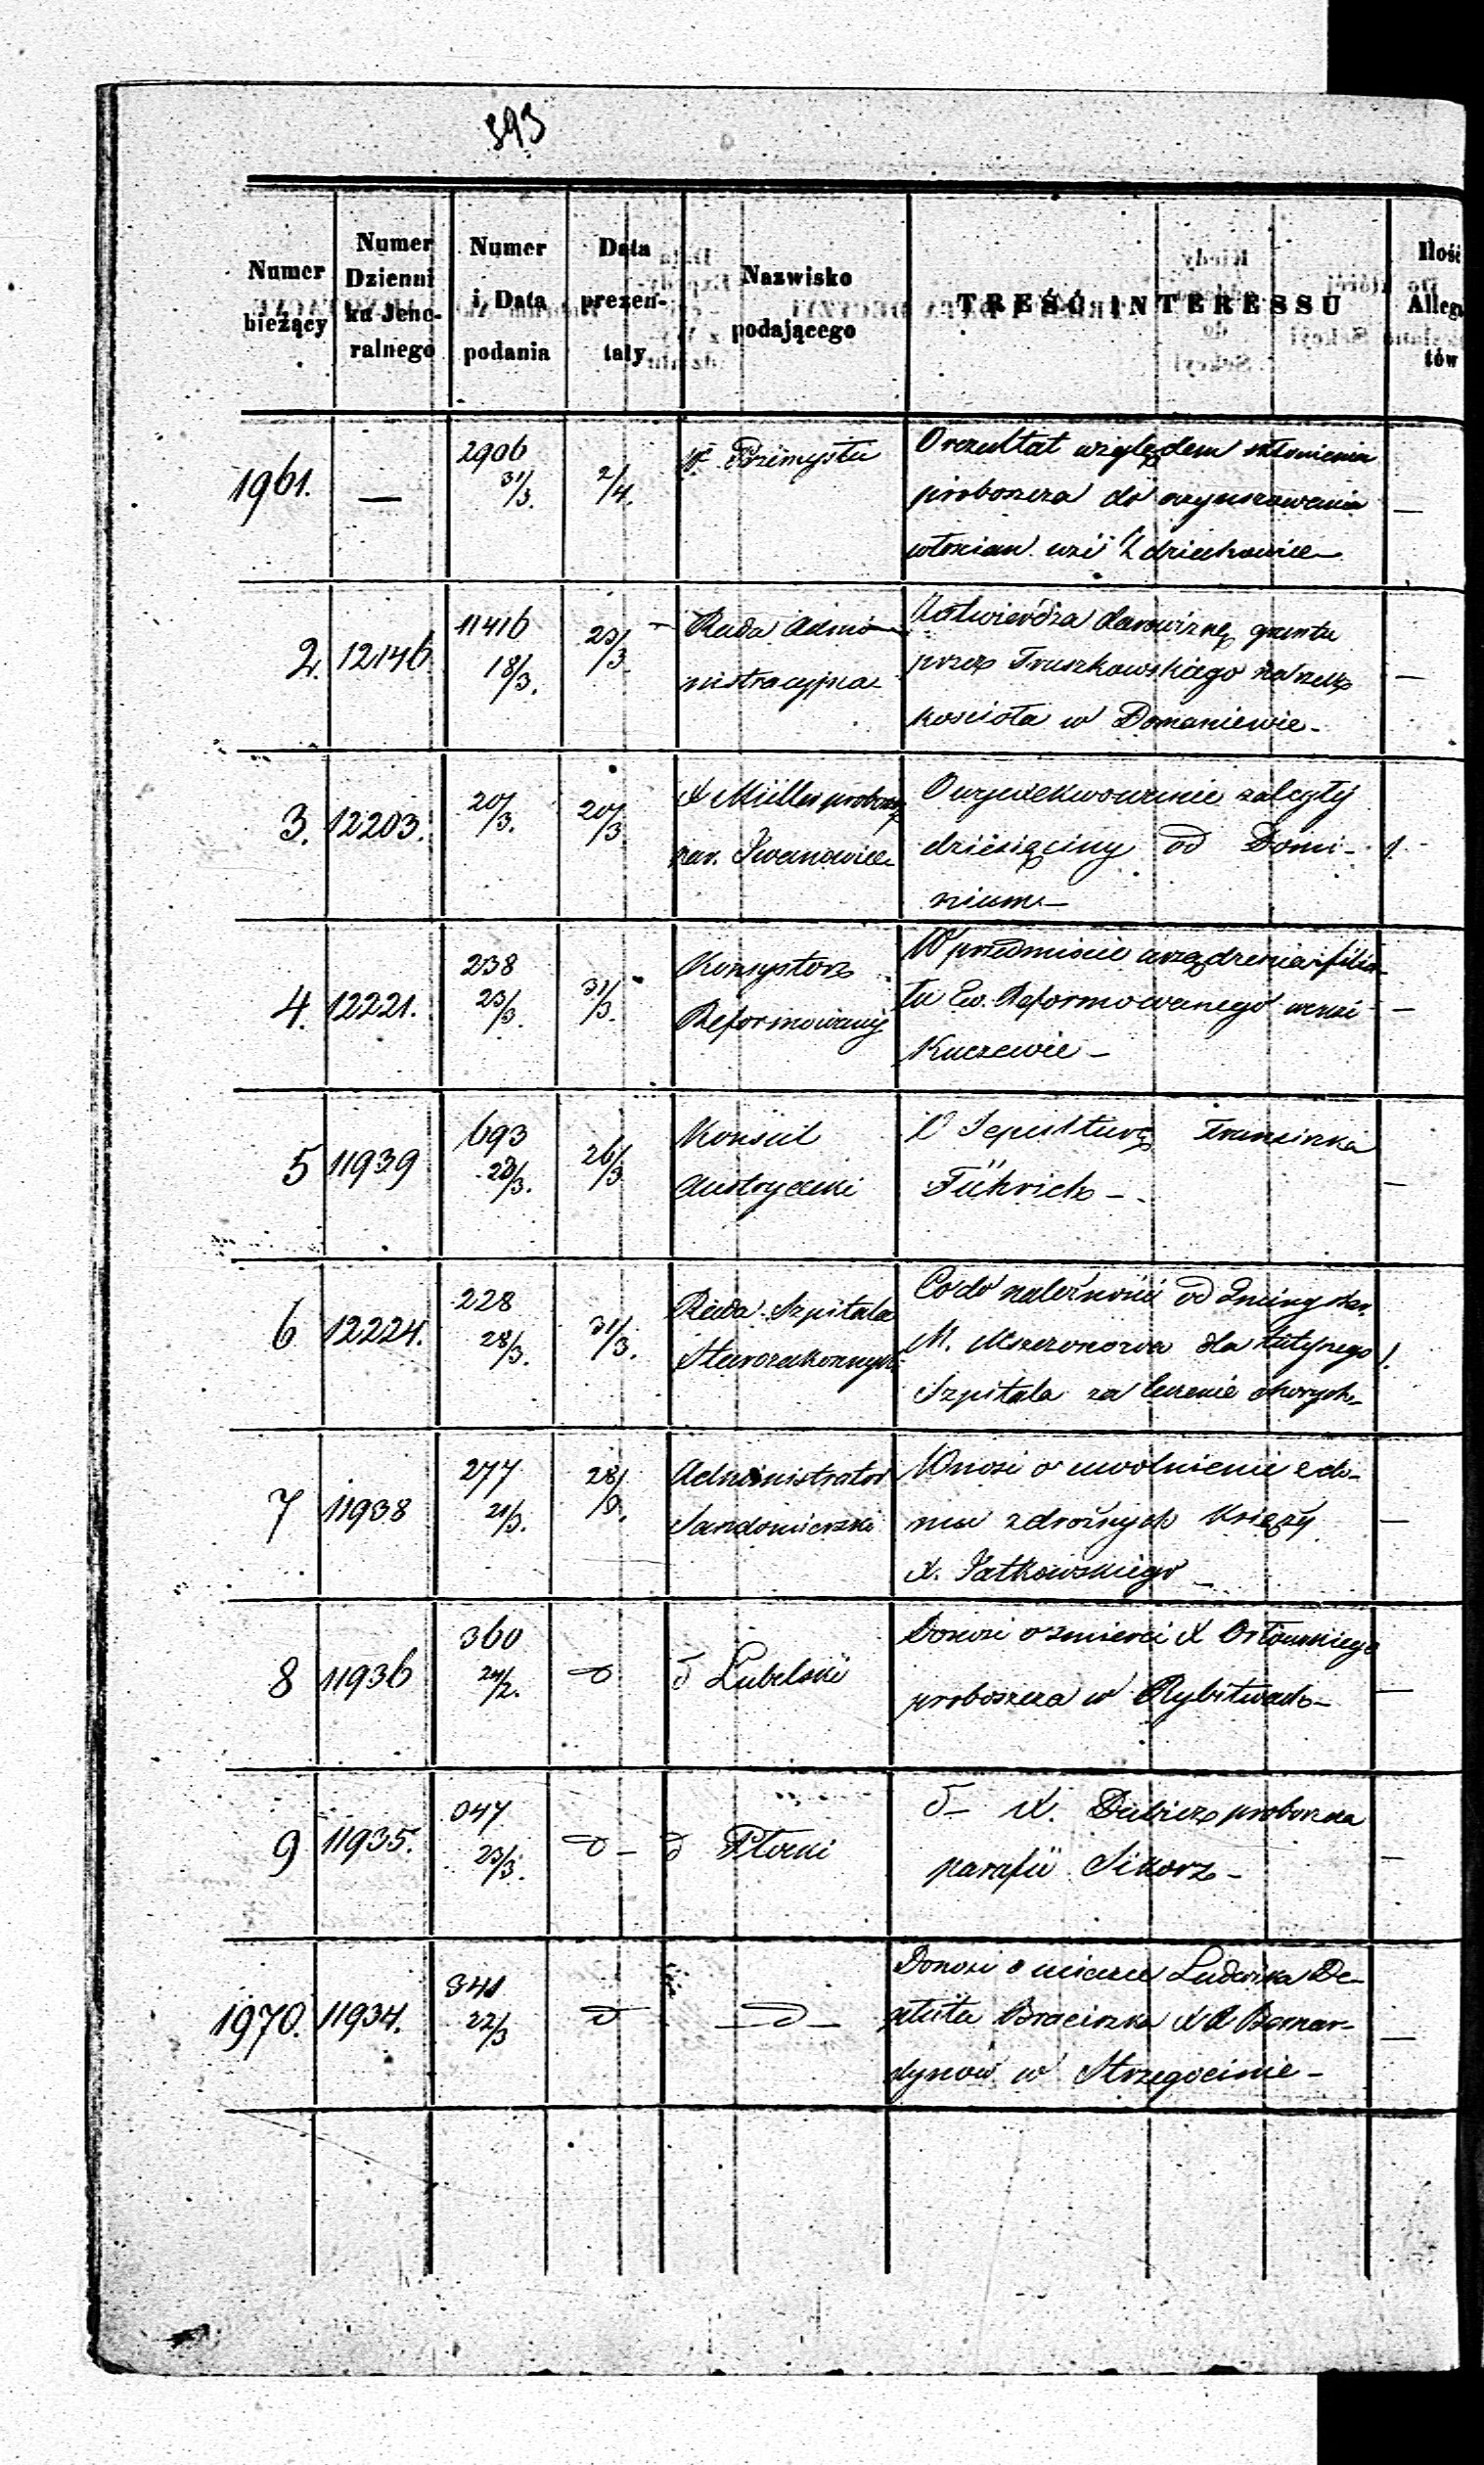 393
Numer bieżący
Numer Dzienni ka Jene- ralnego
Numer i Data podania
Data prezen- taty
Nazwisko podającego
TREŚĆ INTERESSU
Ilość Allega tów
1961. — 2906 31/3. 2/4. W. Przemysłu
O rezultat względem skłonienia
proboszcza do oczynszowania —
włościan wsi Zdziechowice—
2. 12146 11416 18/3. 23/3 Rada Admi-
nistracyjna
Zatwierdza darowiznę gruntu
przez Truszkowskiego na rzecz —
kościoła w Domaniewie—
3. 12203. 20/3. 20/3 X Müller proboszcz
par. Iwanowice
O wyexekwowanie zaległej
dziesięciny od Domi- 1.
nium—
4. 12221. 238 23/3. 31/3. Konsystorz
Reformowany
W przedmiocie urządzenia filia-
łu Ew. Reformowanego we wsi —
Kuczewie—
5 11939 693 23/3. 26/3 Konsul
Austryacki
O Sepulturę Franciszka
Führich— —
6 12224. 228 28/3. 31/3. Rada Szpitala
Starozakonnych
Co do należności od
M. Mszczonowa dla tutejszego 1.
Szpitala za leczenie chorych—
7 11938 277 21/3. 28/3. Administrator
Sandomierski
Wnosi o uwolnienie z do-
mu zdrożnych Księży —
X. Jatkowskiego—
8 11936 360 24/2. d d Lubelski
Donosi o śmierci X Orłowskiego
proboszcza w Rybitwach— —
9 11935. 047 23/3. d— d Płocki
d— X. Dubicz proboszcza
parafii Sikorz— —
1970. 11934. 341 22/3 d —d—
Donosi o ucieczce Ludwika De-
Braciszka XX Bernar- —
dynów w Strzegocinie—